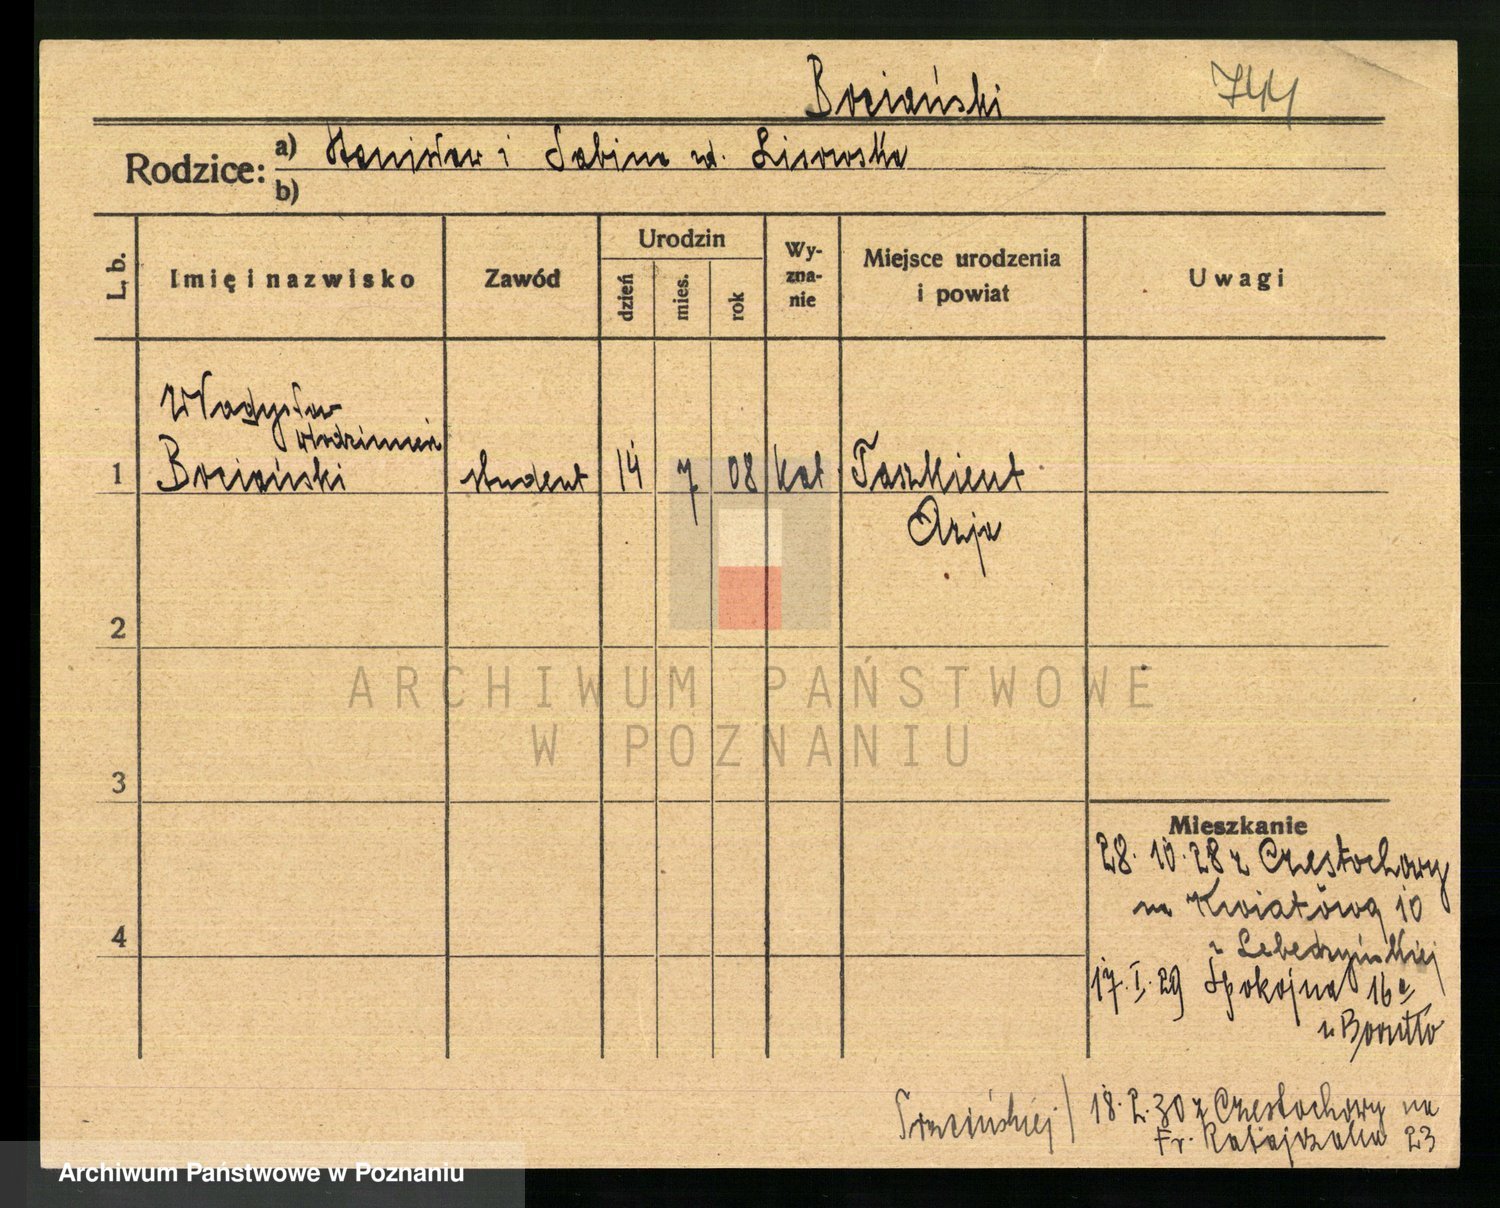 Bociański 744
Rodzice: a) Stanisław i Sabina ur. Lisowska
b)
L. b.
Imię i nazwisko
Zawód
Urodzin
dzień
mies.
rok
Wy-
zna-
nie
Miejsce urodzenia
i powiat
Uwagi
Władysław
Włodzimierz
1 Bociański student 14 7 08 kat Taszkient
Azja
2
3
4
ARCHIWUM PAŃSTWOWE
W POZNANIU
Mieszkanie
28. 10. 28 z Częstochowy
na Kwiatową 10
17. I. 29 Spokojna 16a
18. 2. 30 z Częstochowy na
Fr. Ratajczaka 23
Archiwum Państwowe w Poznaniu